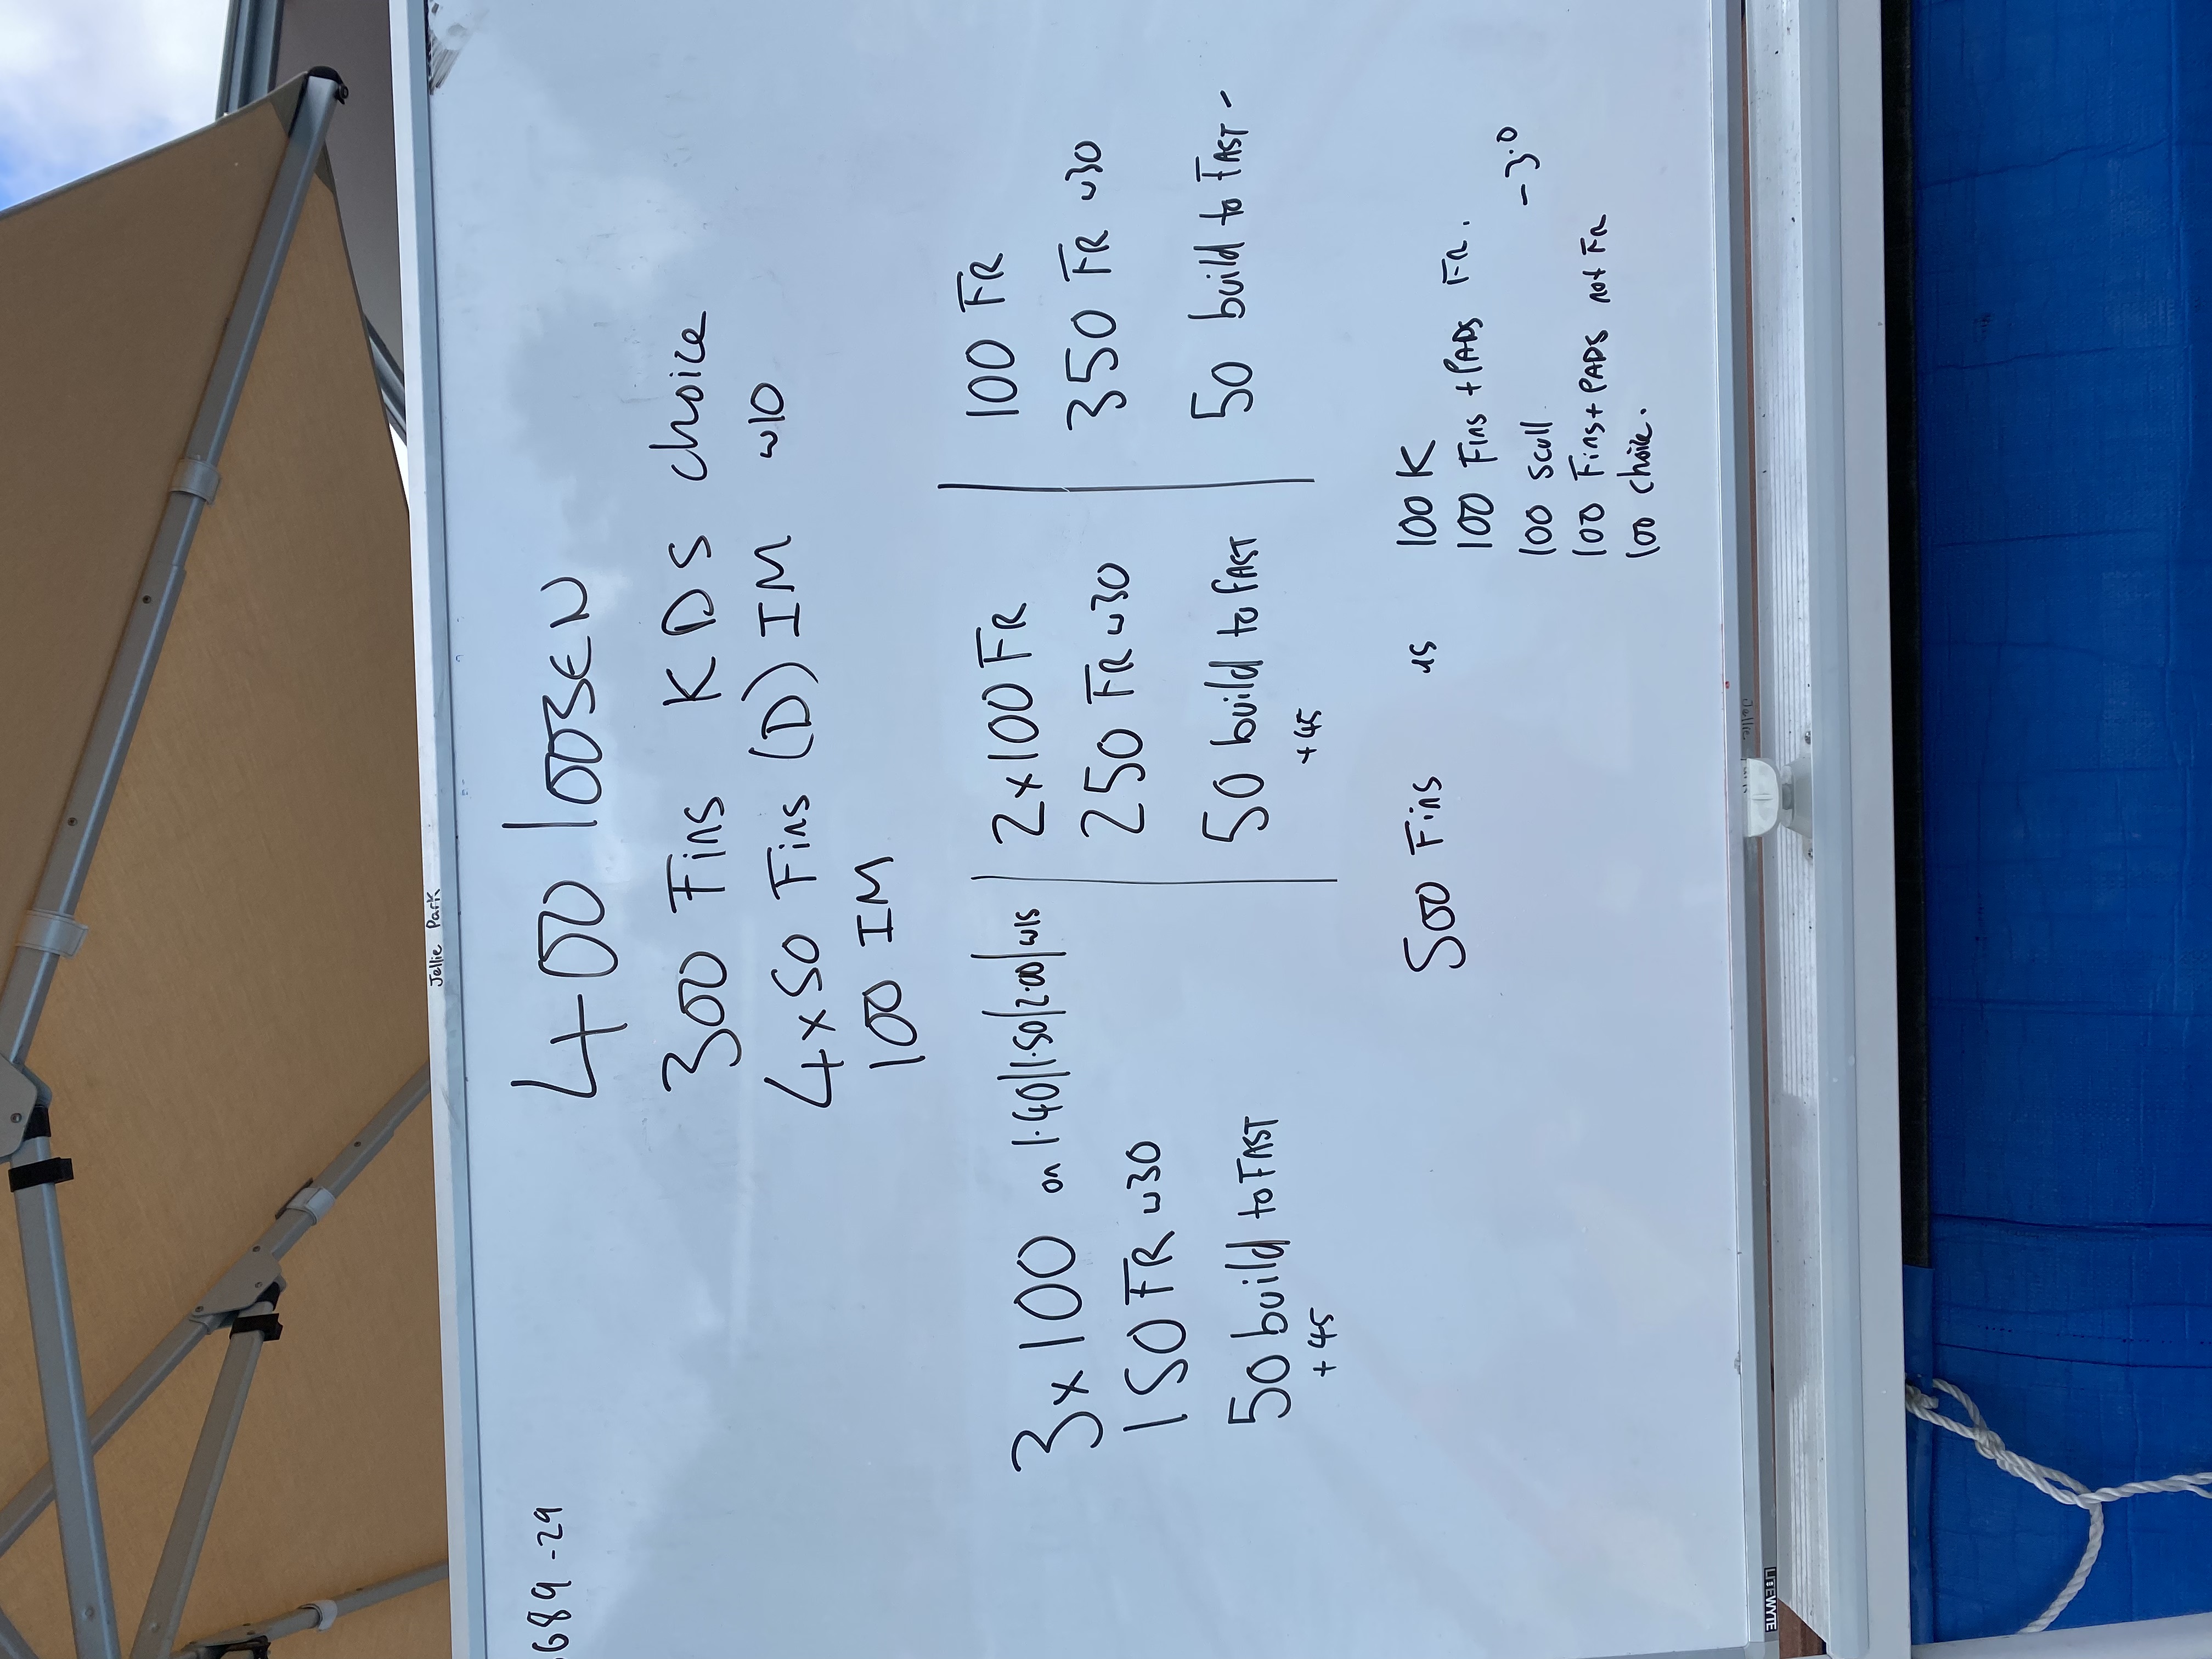 Jellie Park
689-29
400 loosen
300 Fins KDS choice
4x50 Fins (D) IM w10
100 IM
3x100 on 1.40/1.50/2.00/w15
150 FR w30
50 build to FAST
+45
2x100 FR
250 FR w30
50 build to FAST
+45
100 FR
350 FR w30
50 build to FAST -
500 Fins as
100 K
100 Fins + PADS FR.
100 scull
-3.0
100 Fins + PADS not FR
100 choice.
Jellie
LITEWYTE